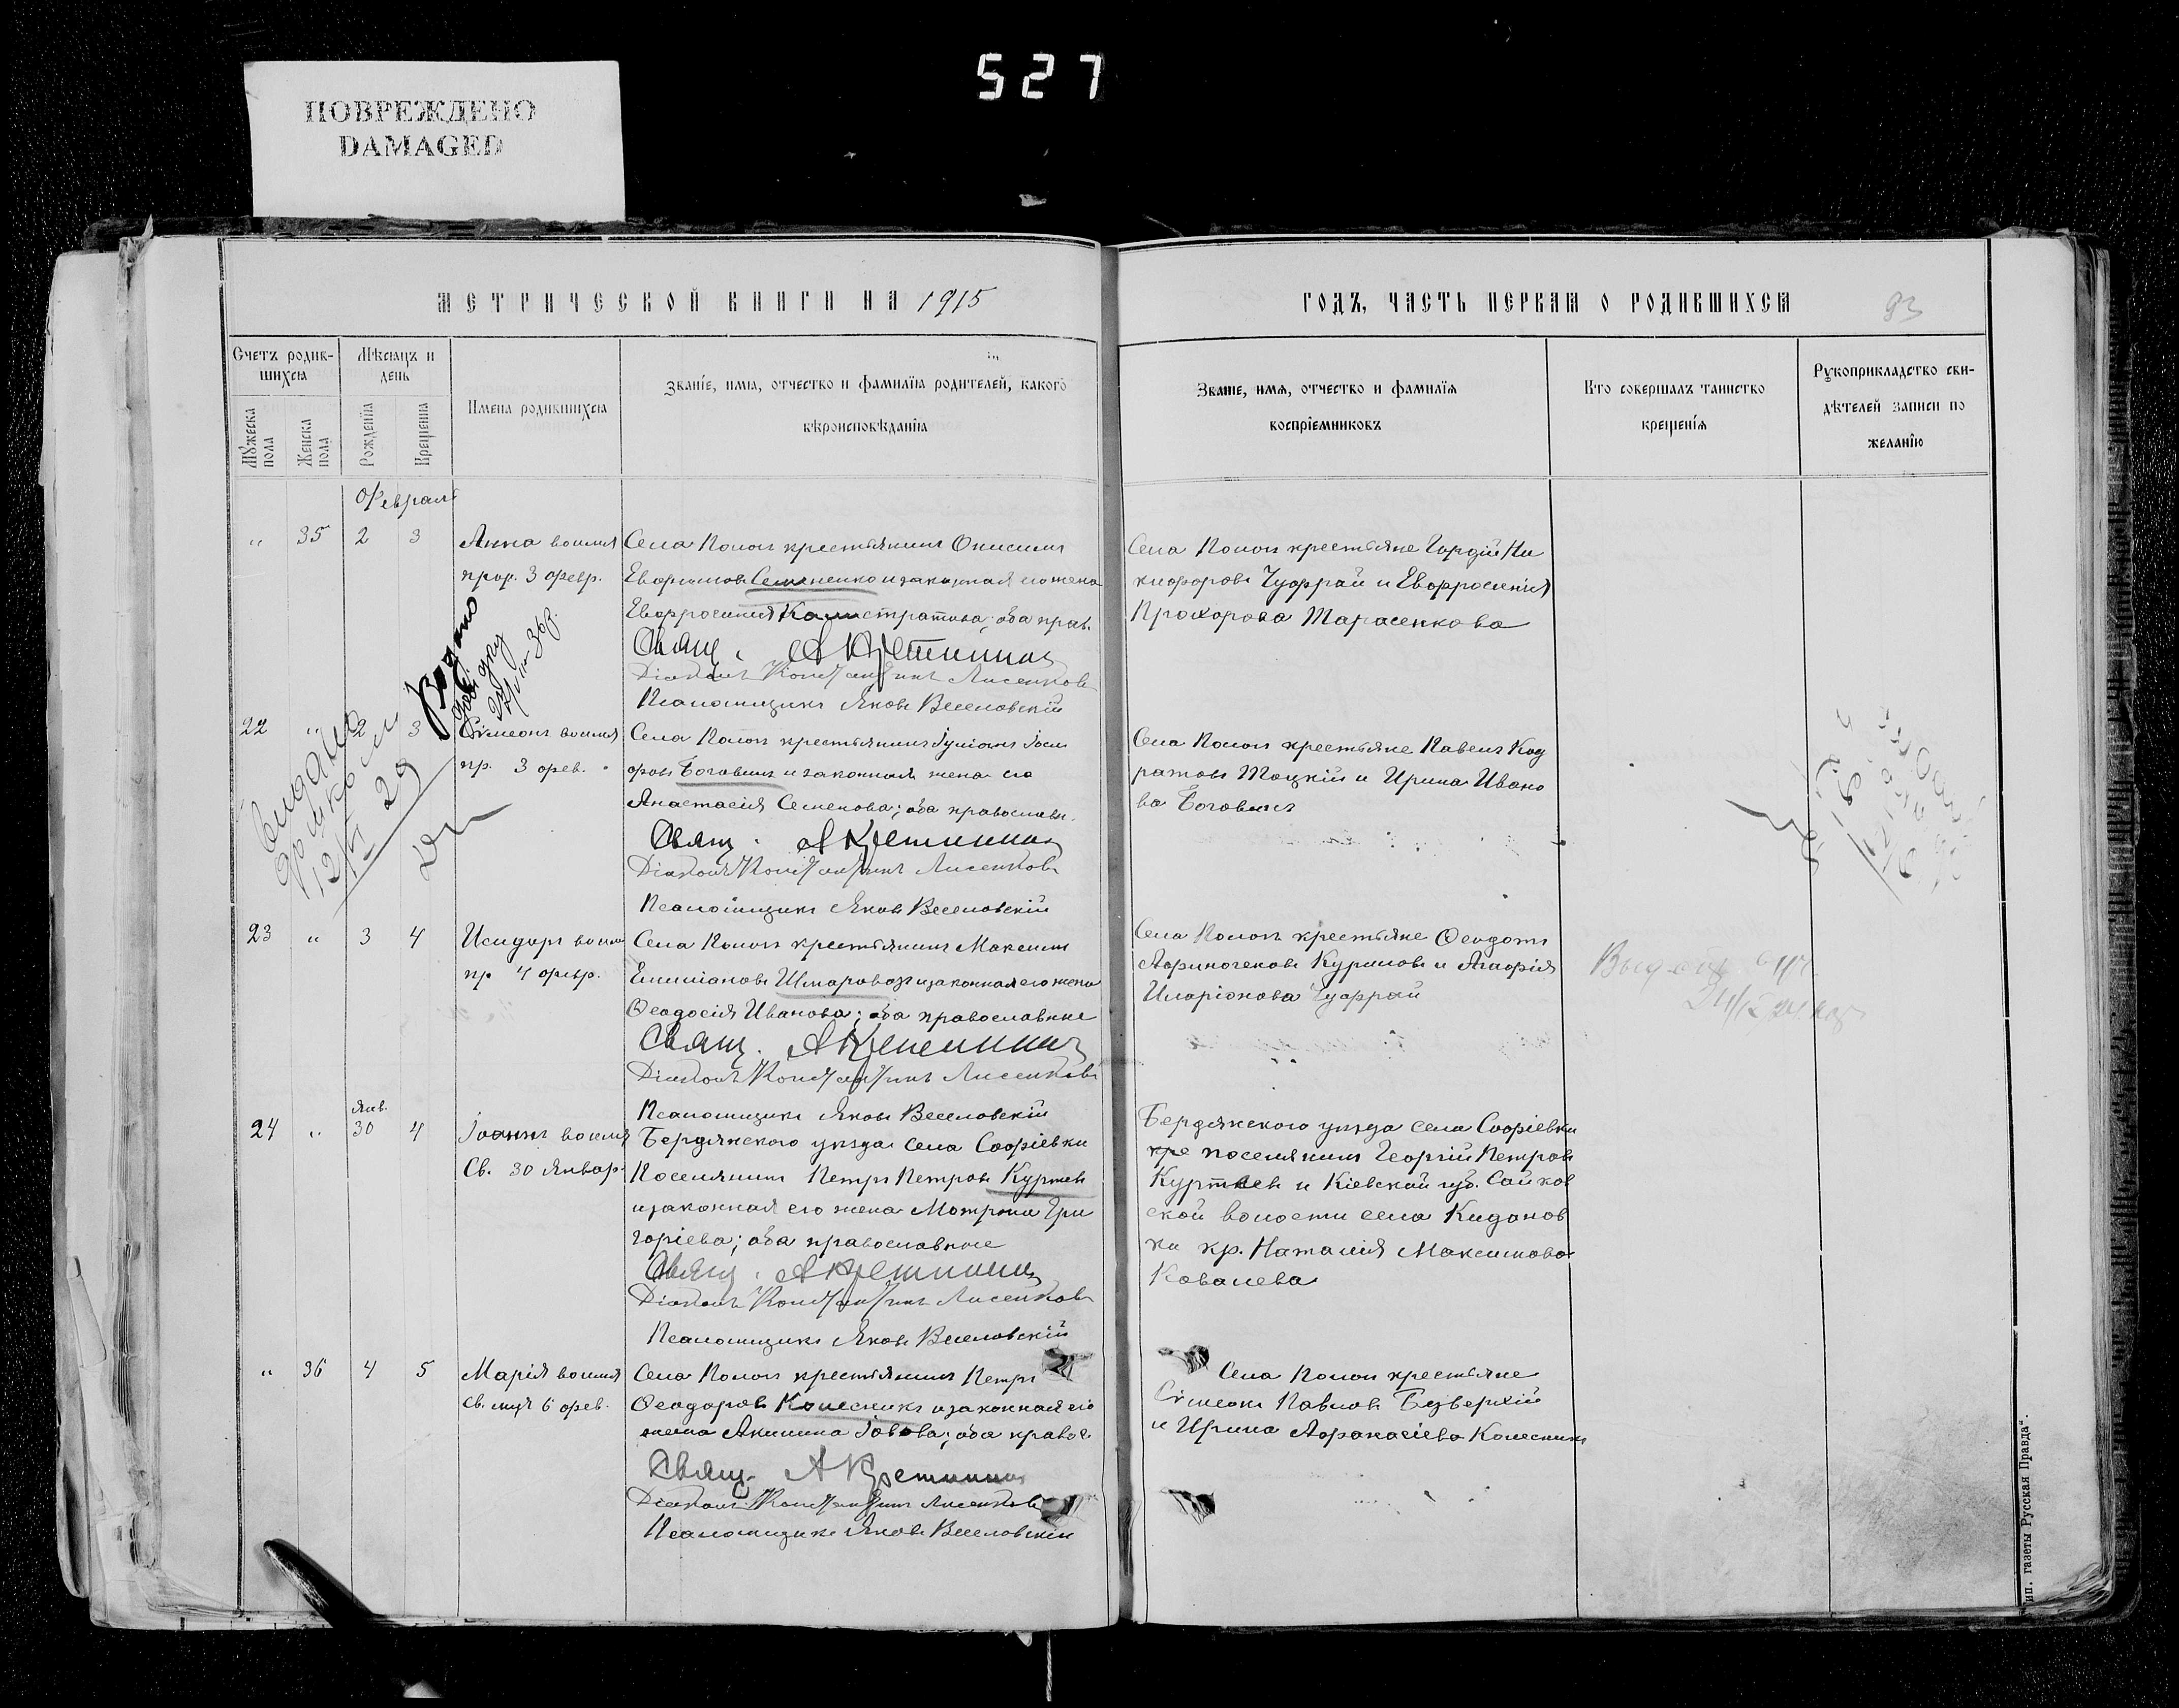 527
ПОВРЕЖДЕНО
DAMAGED
МЕТРИЧЕСКОЙ КНИГИ НА 1915
ГОДЪ, ЧАСТЬ ПЕРВАЯ О РОДИВШИХСЯ
93
Счетъ родив-
шихся
Мужеска пола
Женска пола
Мѣсяцъ и
день
Рожденія
Крещенія
Имена родившихся
Званіе, имя, отчество и фамилія родителей, какого
вѣроисповѣданія
Званіе, имя, отчество и фамилія
воспріемниковъ
Кто совершалъ таинство
крещенія
Рукоприкладство сви-
дѣтелей записи по
желанію
Февраль
" 35 2 3
Анна во имя
прор. 3 февр.
Села Попои крестьянинъ Онисимъ
Евфимовъ Семененко и законная его жена
Евфросинія Калистратова; оба прав.
Свящ. А Кретинин
Діаконъ Константинъ Лисенковъ
Псаломщикъ Яковъ Веселовскій
Села Попои крестьяне Гордій Ни
кифоровъ Чуфрай и Евфросинія
Прохорова Тарасенкова
22 " 2 3
Сѵмеонъ во имя
пр. 3 фев.
Села Попои крестьянинъ Іуліанъ Іоси
фовъ Боговинъ и законная жена его
Анастасія Семенова; оба православн.
Свящ. А Кретинин
Діаконъ Константинъ Лисенковъ
Псаломщикъ Яковъ Веселовскій
Села Попои крестьяне Павелъ Код
ратовъ Тоцкій и Ирина Ивано
ва Боговинъ
23 " 3 4
Исидоръ во имя
пр 4 февр.
Села Попои крестьянинъ Максимъ
Емиліановъ Шмаровозъ и законная его жена
Ѳеодосія Иванова; оба православные
Свящ. А Кретинин
Діаконъ Константинъ Лисенковъ
Псаломщикъ Яковъ Веселовскій
Села Попои крестьяне Ѳеодотъ
Афиногеновъ Куриловъ и Агафія
Иларіонова Чуфрай
24 " янв. 30 4
Іоаннъ во имя
Св. 30 Январ.
Бердянского уѣзда села Софіевки
Поселянинъ Петръ Петровъ Куртев
и законная его жена Мотрона Гри
горіева; оба православные
Свящ. А Кретинин
Діаконъ Константинъ Лисенковъ
Псаломщикъ Яковъ Веселовскій
Бердянского уѣзда села Софіевки
кре поселянинъ Георгій Петровъ
Куртвев и Кіевской губ. Сойков
ской волости села Кидановки
кр. Наталія Максимова
Ковалева
" 36 4 5
Марія во имя
св. муч 6 фев.
Села Попои крестьянинъ Петръ
Ѳеодоровъ Колесникъ и законная его
жена Акилина Іовова; оба правос.
Свящ. А Кретинин
Діаконъ Константинъ Лисенковъ
Псаломщикъ Яковъ Веселовскій
Села Попои крестьяне
Сѵмеонъ Павловъ Безверхій
и Ирина Афанасіева Колесникъ
Тип. газеты „Русская Правда“.